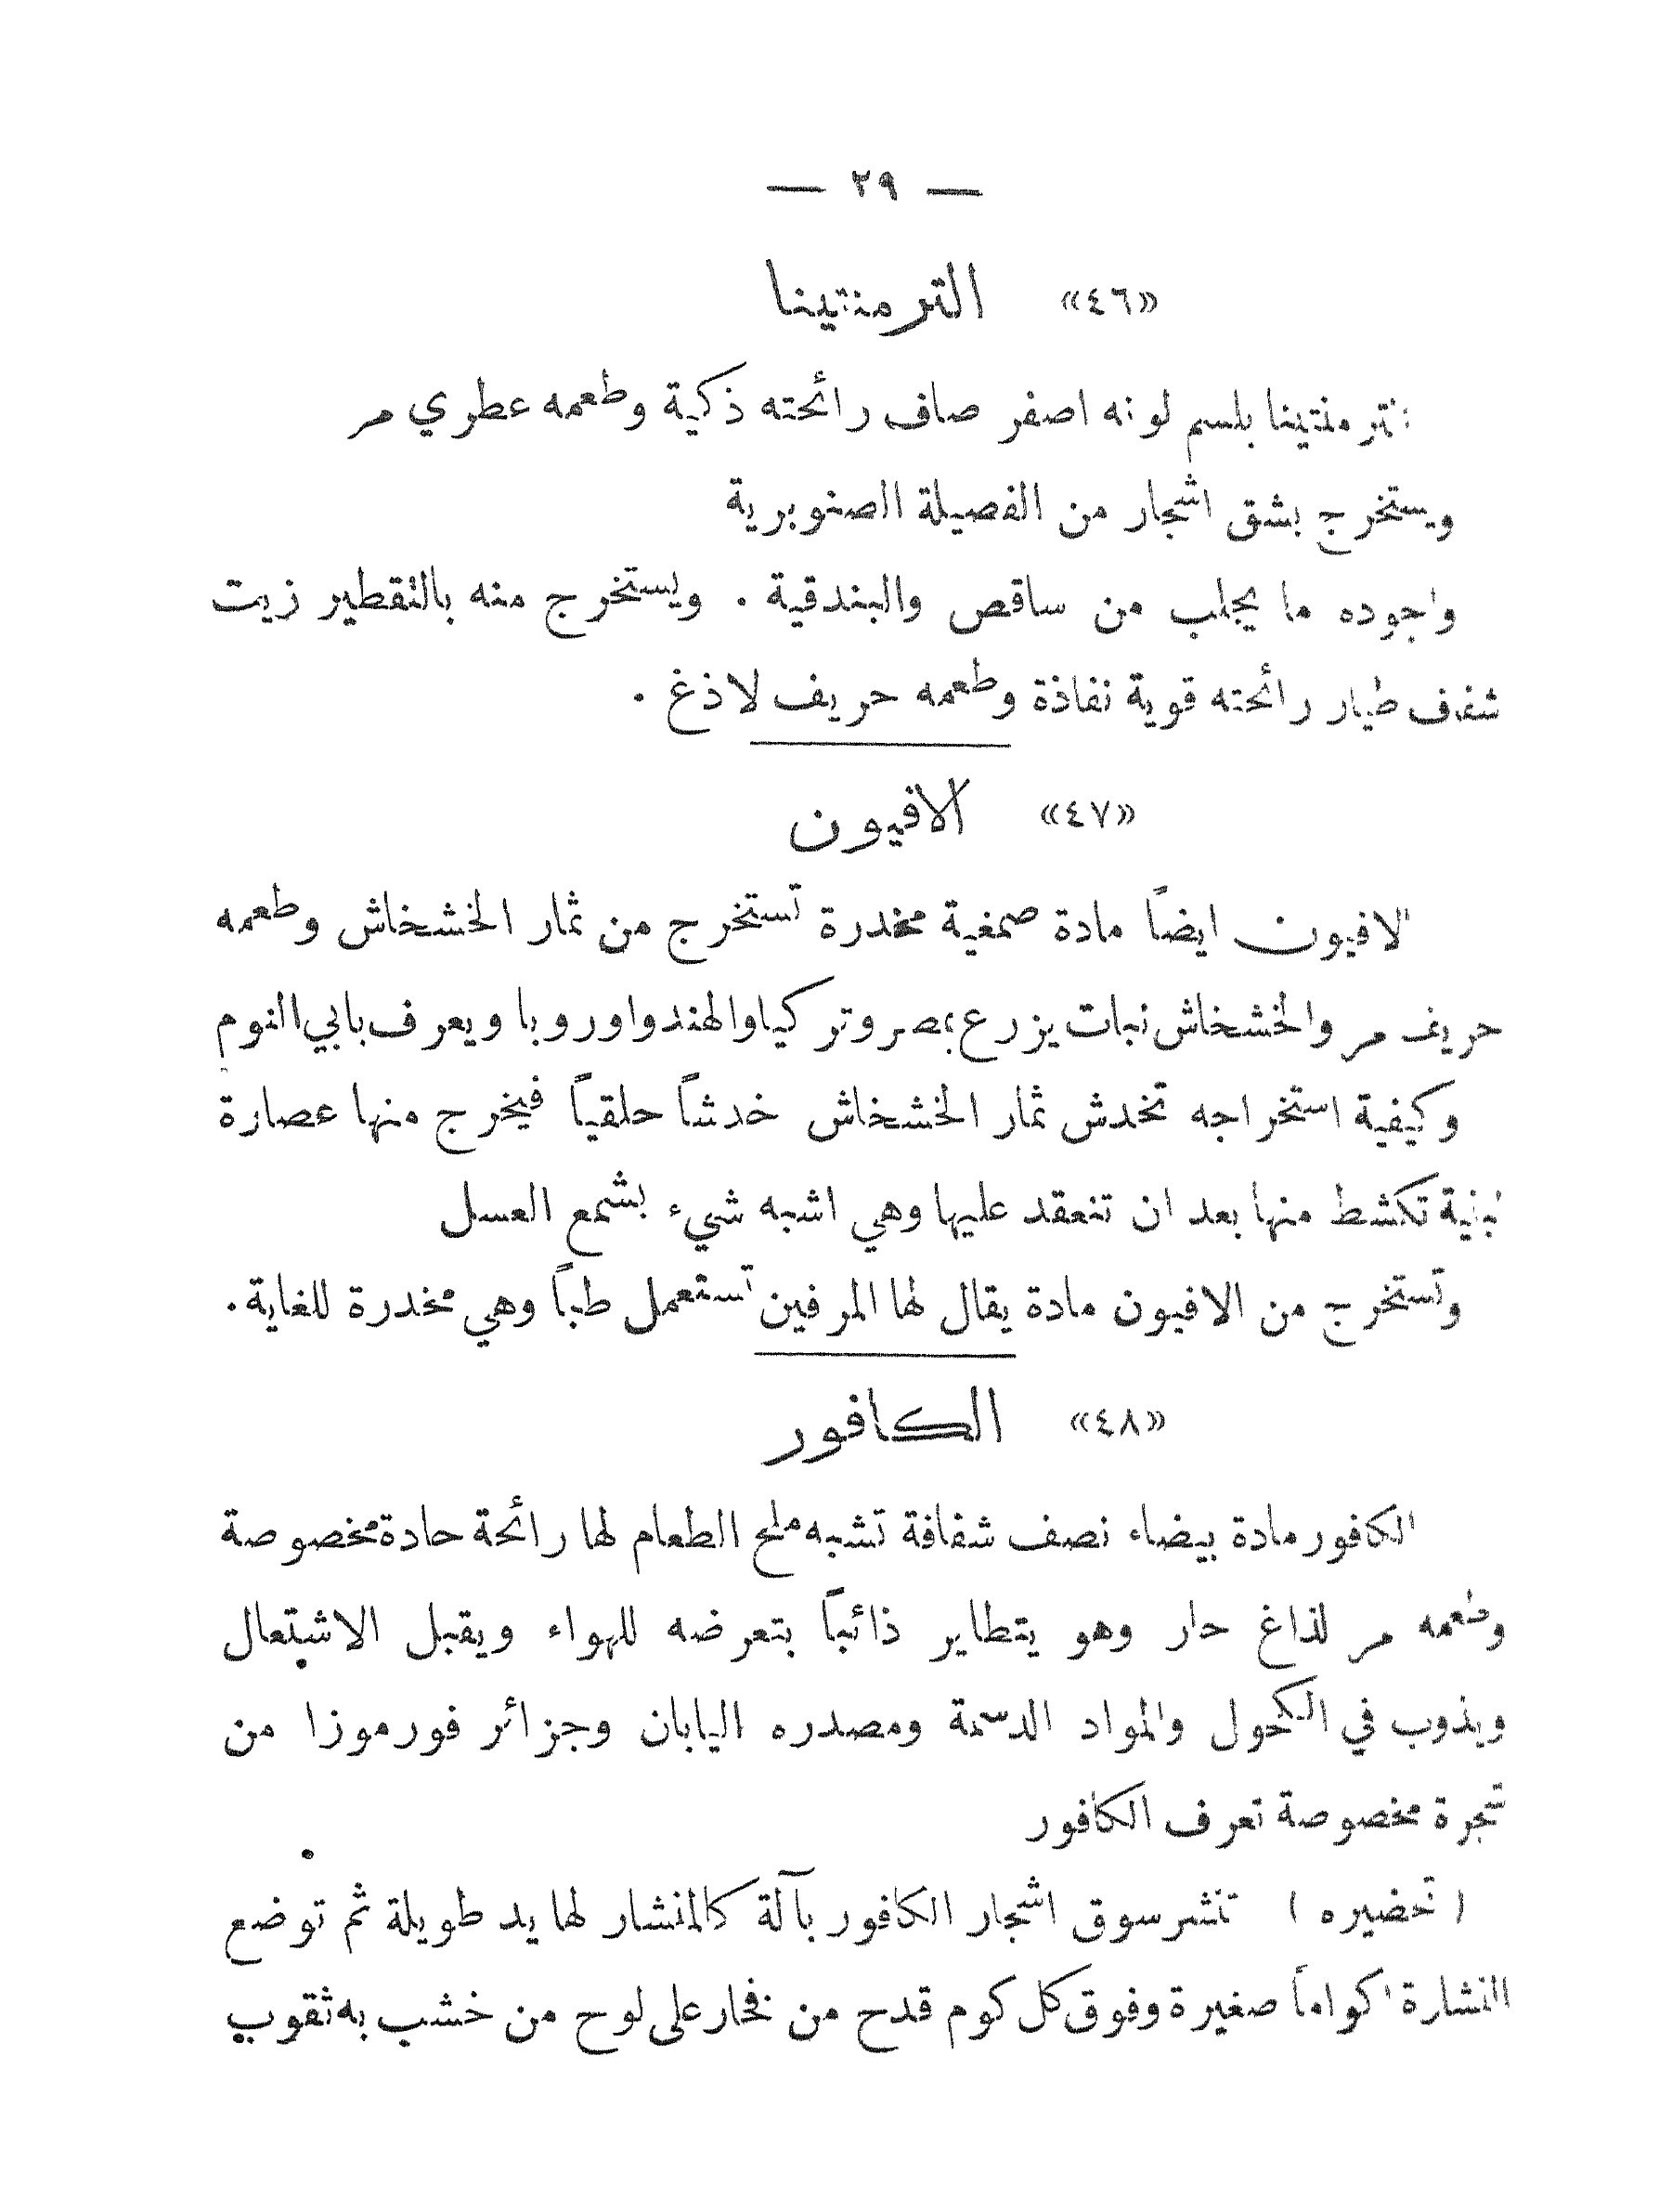 — ٢٩ —
«٤٦» الترمنتينا
الترمنتينا بلسم لونه اصفر صاف رائحته ذكية وطعمه عطري مر
ويستخرج بشق اشجار من الفصيلة الصنوبرية
واجوده ما يجلب من ساقص والبندقية . ويستخرج منه بالتقطير زيت
شفاف طيار رائحته قوية نفاذة وطعمه حريف لاذغ .
«٤٧» الافيون
الافيون ايضاً مادة صمغية مخدرة تستخرج من ثمار الخشخاش وطعمه
حريف مر والخشخاش نبات يزرع بمصر وتركيا والهند واوروبا ويعرف بابي النوم
وكيفية استخراجه تخدش ثمار الخشخاش خدشاً حلقياً فيخرج منها عصارة
لبنية تكشط منها بعد ان تنعقد عليها وهي اشبه شيء بشمع العسل
وتستخرج من الافيون مادة يقال لها المرفين تستعمل طباً وهي مخدرة للغاية .
«٤٨» الكافور
الكافور مادة بيضاء نصف شفافة تشبه ملح الطعام لها رائحة حادة مخصوصة
وطعمه مر لذاغ حار وهو يتطاير ذائباً بتعرضه للهواء ويقبل الاشتعال
ويذوب في الكحول والمواد الدسمة ومصدره اليابان وجزائر فورموزا من
شجرة مخصوصة تعرف الكافور
( تحضيره ) تنشر سوق اشجار الكافور بآلة كالمنشار لها يد طويلة ثم توضع
النشارة اكواماً صغيرة وفوق كل كوم قدح من فخار على لوح من خشب به ثقوب